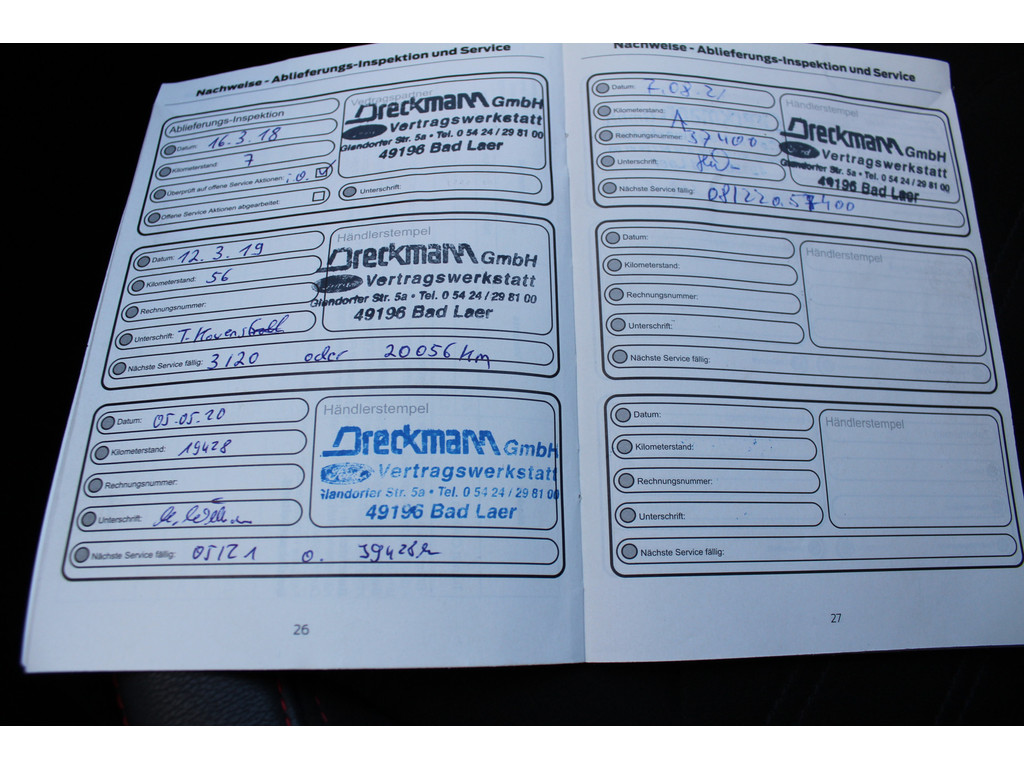 Nachweise - Ablieferungs-Inspektion und Service
Ablieferungs-Inspektion
Datum: 16.3.18
Kilometerstand: 7
Überprüft auf offene Service Aktionen: i.O.
Offene Service Aktionen abgearbeitet:
Vertragspartner
Dreckmann GmbH
Vertragswerkstatt
Glandorfer Str. 5a • Tel. 0 54 24 / 29 81 00
49196 Bad Laer
Unterschrift:
Datum: 12.3.19
Kilometerstand: 56
Rechnungsnummer:
Unterschrift:
Nächste Service fällig: 3/20 oder 20056 Km
Händlerstempel
Dreckmann GmbH
Vertragswerkstatt
Glandorfer Str. 5a • Tel. 0 54 24 / 29 81 00
49196 Bad Laer
Datum: 05.05.20
Kilometerstand: 19428
Rechnungsnummer:
Unterschrift:
Nächste Service fällig: 05/21 o. 39428
Händlerstempel
Dreckmann GmbH
Vertragswerkstatt
Glandorfer Str. 5a • Tel. 0 54 24 / 29 81 00
49196 Bad Laer
26
Nachweise - Ablieferungs-Inspektion und Service
Datum: 7.08.21
Kilometerstand:
Rechnungsnummer: 37400
Unterschrift:
Nächste Service fällig: 08/22 o. 57400
Händlerstempel
Dreckmann GmbH
Vertragswerkstatt
Glandorfer Str. 5a • Tel. 0 54 24 / 29 81 00
49196 Bad Laer
Datum:
Kilometerstand:
Rechnungsnummer:
Unterschrift:
Nächste Service fällig:
Händlerstempel
Datum:
Kilometerstand:
Rechnungsnummer:
Unterschrift:
Nächste Service fällig:
Händlerstempel
27